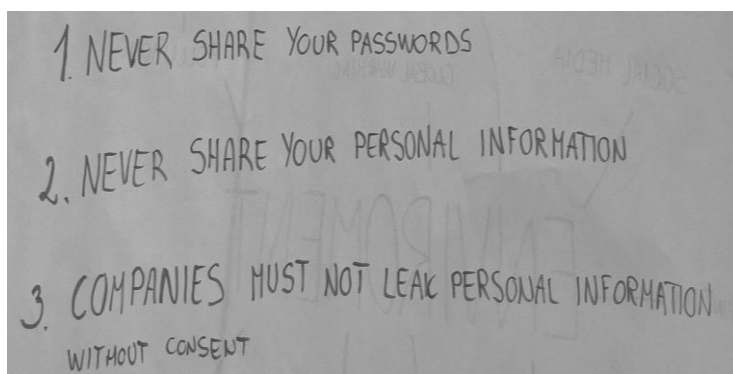 1. NEVER SHARE YOUR PASSWORDS
2. NEVER SHARE YOUR PERSONAL INFORMATION
3. COMPANIES MUST NOT LEAK PERSONAL INFORMATION
WITHOUT CONSENT